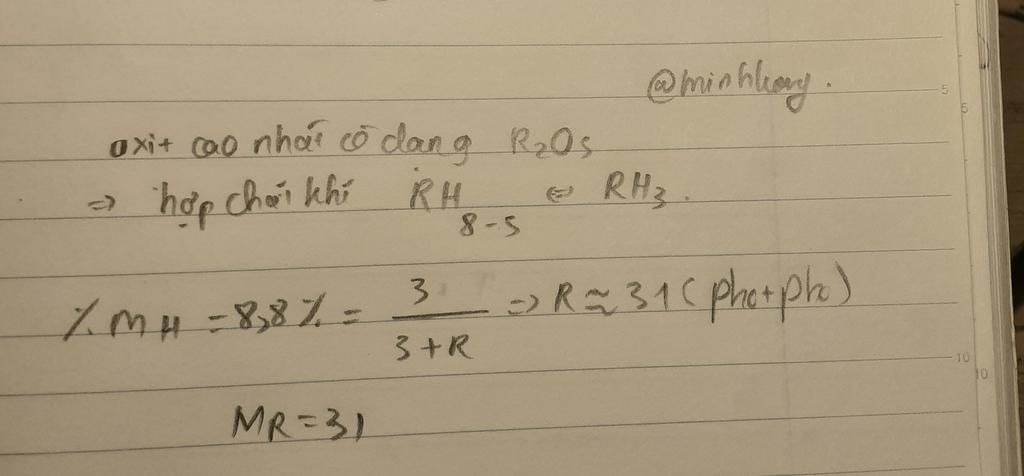 @minhkong.
oxit cao nhất có dạng R₂O₅
=> hợp chất khí RH₈₋₅ ⇔ RH₃.
% mH = 8,8% = 3 / (3+R) => R ≈ 31 (photpho)
MR = 31
5
5
10
10